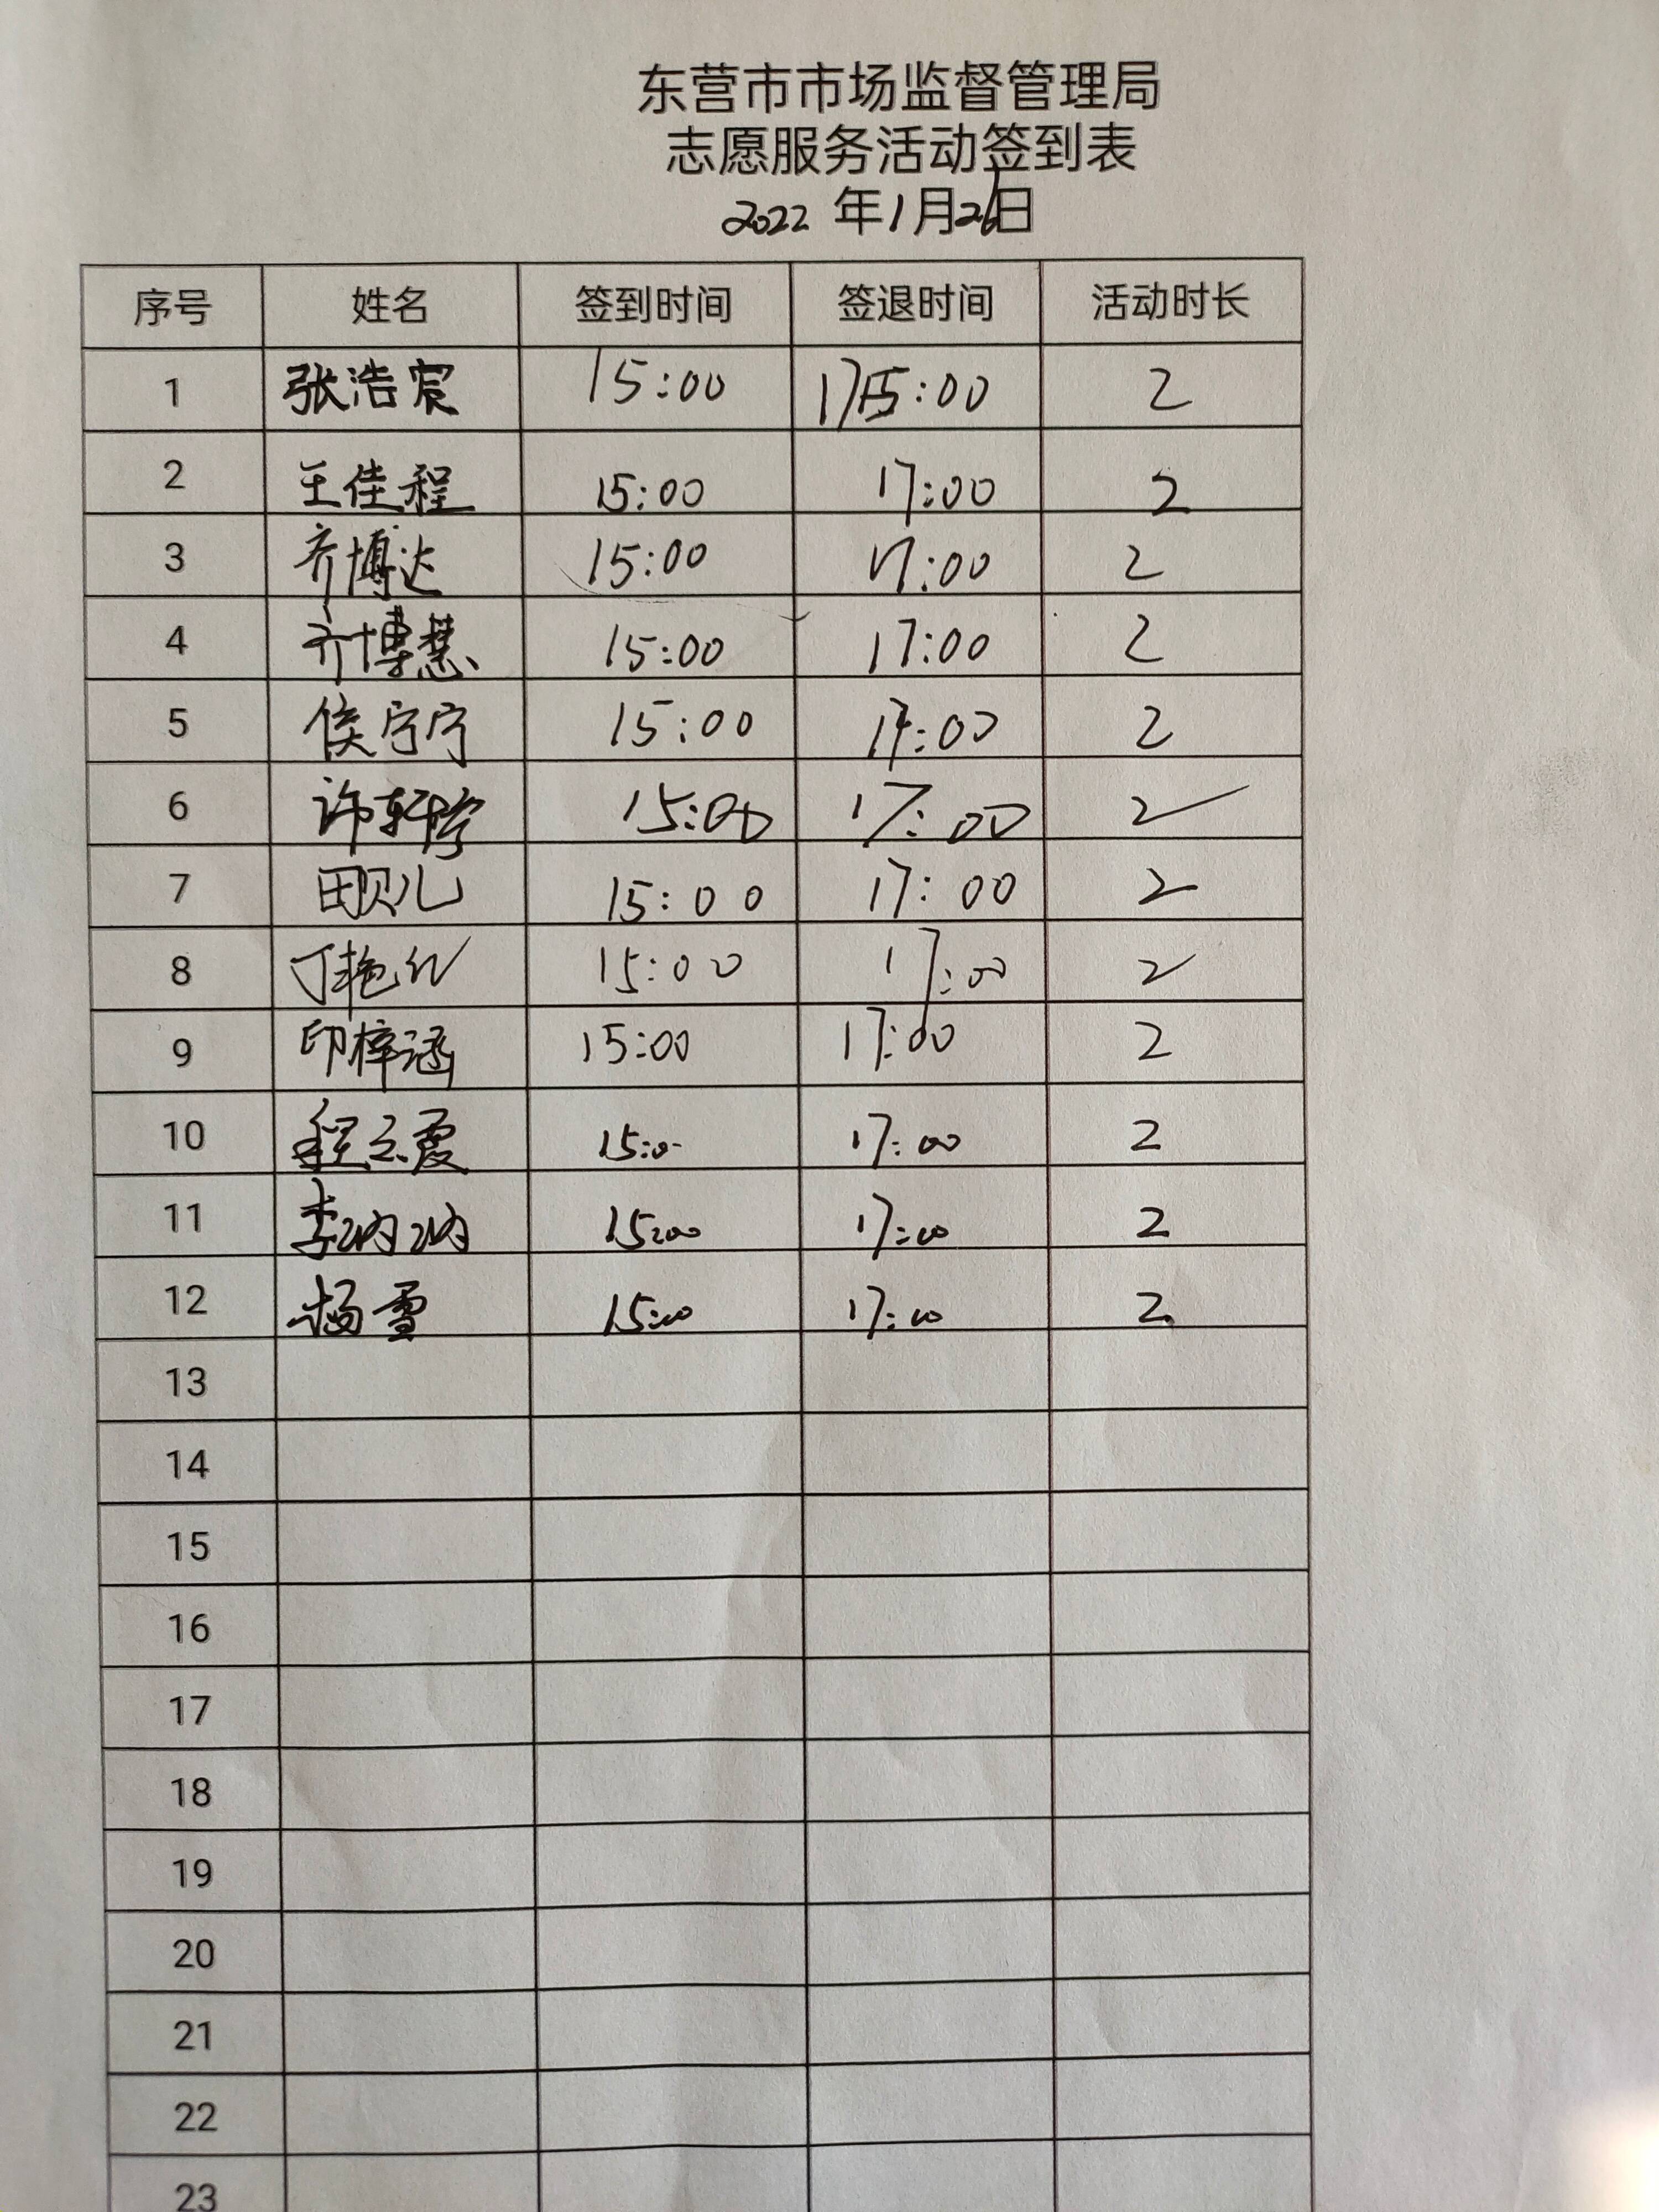 东营市市场监督管理局
志愿服务活动签到表
2022 年1月26日
序号 姓名 签到时间 签退时间 活动时长
1 张浩宸 15:00 17:00 2
2 王佳程 15:00 17:00 2
3 齐博达 15:00 17:00 2
4 齐博慧 15:00 17:00 2
5 侯宁宁 15:00 17:00 2
6 许轩 15:00 17:00 2
7 田贝儿 15:00 17:00 2
8 丁艳红 15:00 17:00 2
9 印梓涵 15:00 17:00 2
10 程云霞 15:00 17:00 2
11 李讷讷 15:00 17:00 2
12 杨雪 15:00 17:00 2
13
14
15
16
17
18
19
20
21
22
23